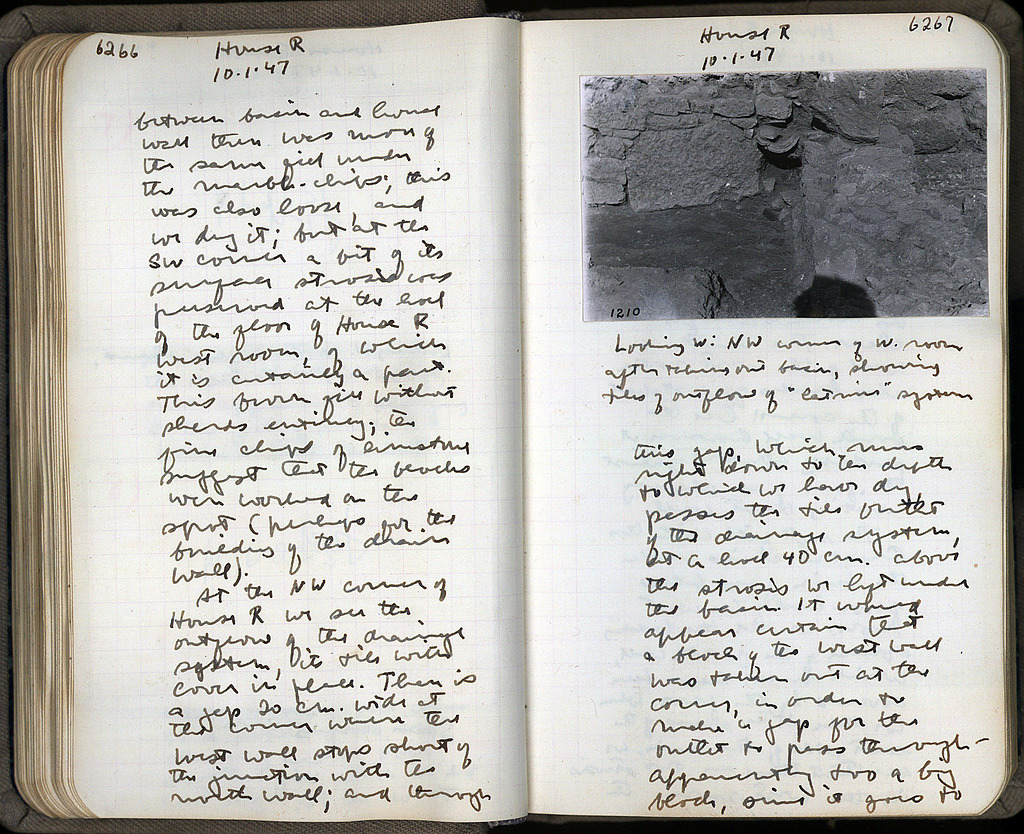 6266
House R
10.1.47
between basin and house
wall there was more of
the same fill under
the marble-chips; this
was also loose, and
we dug it; but at the
SW corner a bit of its
surface strosis was
preserved at the level
of the floor of House R
West room, of which
it is certainly a part.
This brown fill without
sherds entirely; the
fine chips of limestone
suggest that the blocks
were worked on the
spot (perhaps for the
building of the drain
wall).
At the NW corner of
House R we see the
outflow of the drainage
system, its tiles with
cover in place. There is
a gap 20 cm. wide at
the corner where the
West wall stops short of
the junction with the
north wall; and through
6267
House R
10.1.47
1210
Looking W: NW corner of W. room
after taking out basin, showing
tiles of outflow of "latrine" system
this gap, which runs
right down to the depth
to which we have dug,
passes the tile outlet
of the drainage system,
at a level 40 cm. above
the strosis we left under
the basin. It would
appear certain that
a block of the west wall
was taken out at the
corner, in order to
make a gap for the
outlet to pass through –
apparently too a big
block, since it goes to